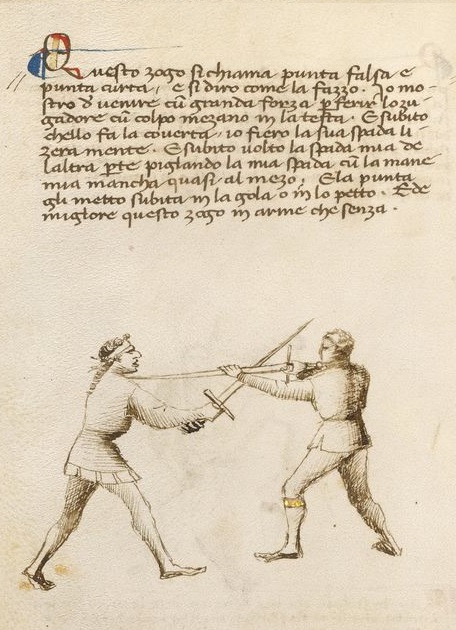 Questo zogo si chiama punta falsa e
punta curta, e si diro come la fazzo. Io mo-
stro d' venire cū granda forza p ferir lo zu-
gadore cū colpo mezano in la testa. E subito
chello fa la coverta, io fiero la sua spada li-
zera mente. E subito volto la spada mia de
laltra pte piglando la mia spada cū la mane
mia mancha quasi al mezo. E la punta
gli metto subita in la gola o in lo petto. Ede
miglore questo zogo in arme che senza.